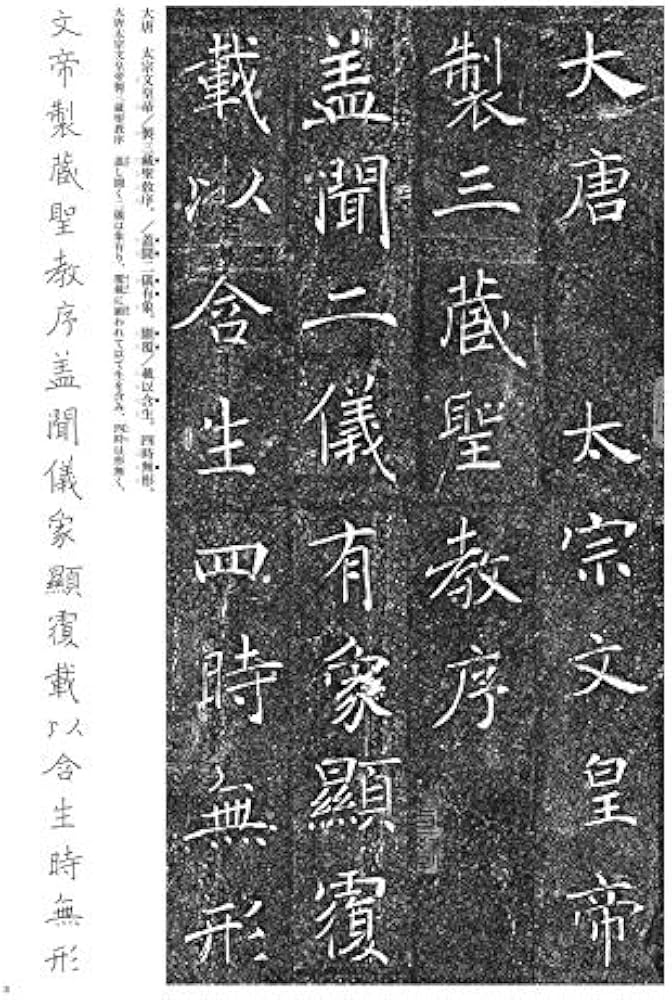 大唐 太宗文皇帝
製三蔵聖教序
盖聞二儀有象顯覆
載以含生四時無形
大唐 太宗文皇帝／製三蔵聖教序。／盖聞二儀有象、顯覆／載以含生。四時無形、
大唐太宗文皇帝製三蔵聖教序 蓋し聞く二儀は象有り、覆載に顕われて以て生を含み、四時は形無く、
文帝製蔵聖教序盖聞儀象顯覆載以含生時無形